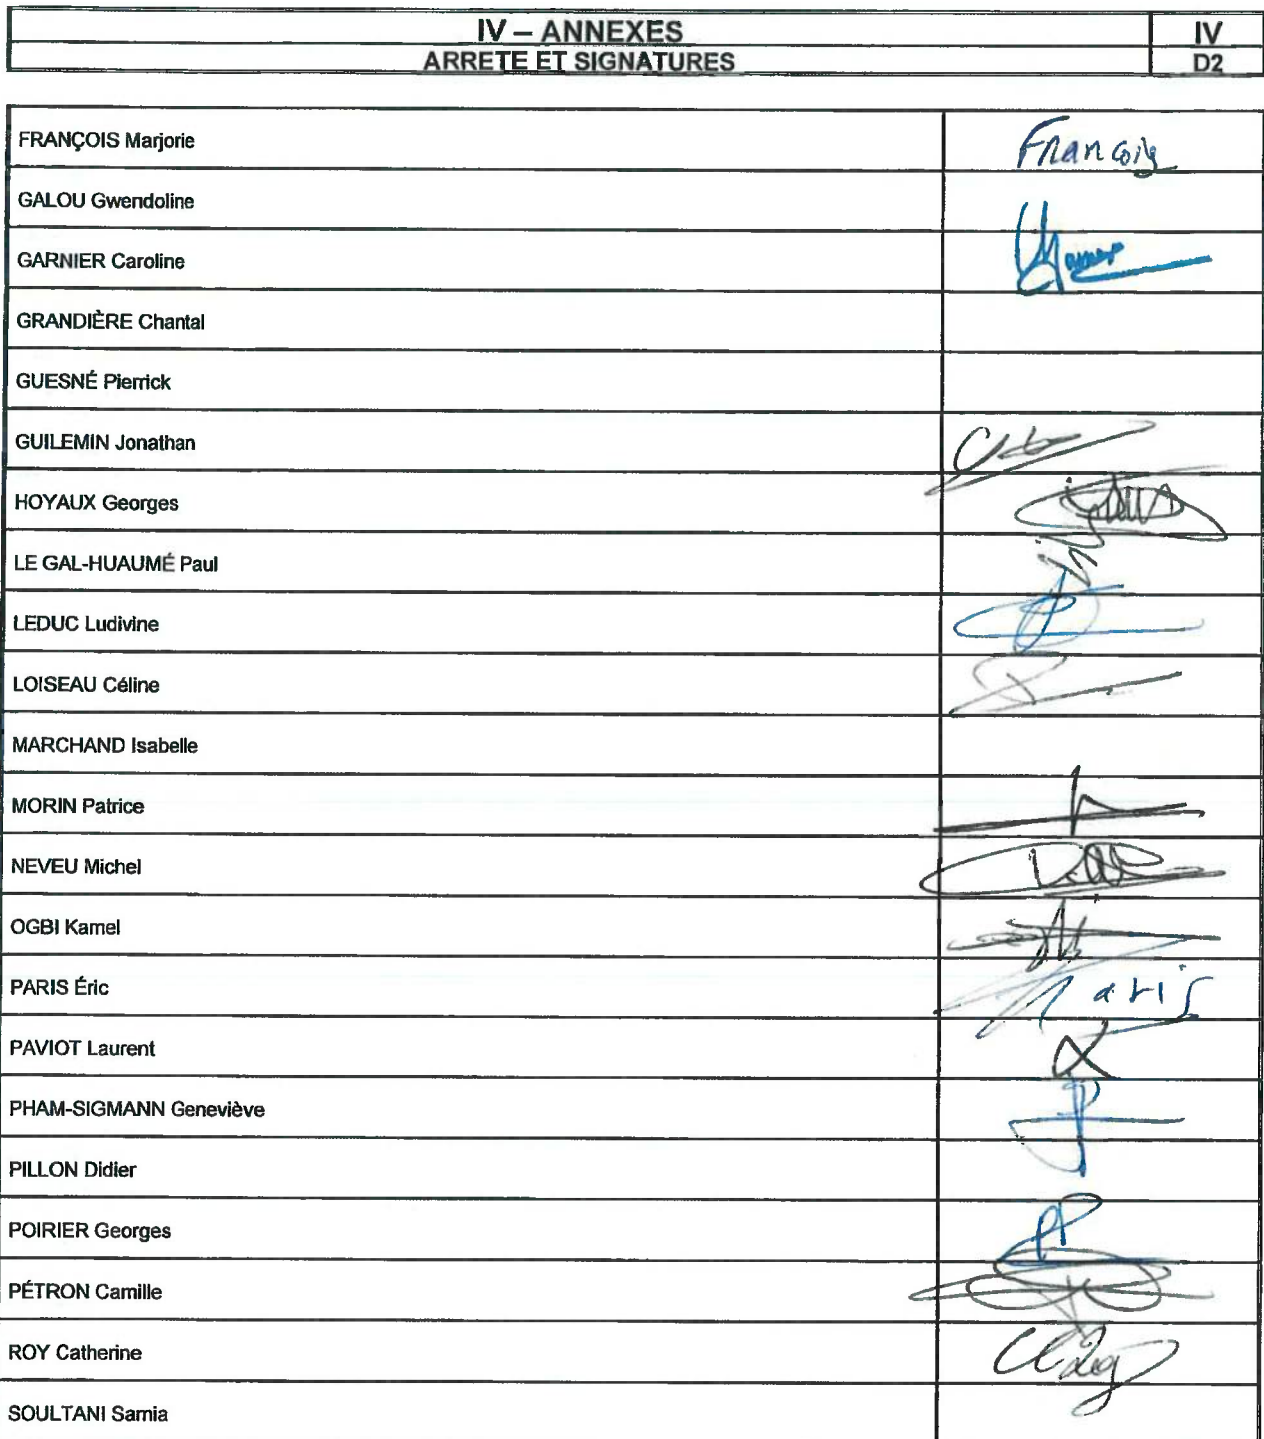 IV – ANNEXES
IV
ARRETE ET SIGNATURES
D2
FRANÇOIS Marjorie
François
GALOU Gwendoline
GARNIER Caroline
GRANDIÈRE Chantal
GUESNÉ Pierrick
GUILEMIN Jonathan
HOYAUX Georges
LE GAL-HUAUMÉ Paul
LEDUC Ludivine
LOISEAU Céline
MARCHAND Isabelle
MORIN Patrice
NEVEU Michel
OGBI Kamel
PARIS Éric
Paris
PAVIOT Laurent
PHAM-SIGMANN Geneviève
PILLON Didier
POIRIER Georges
PÉTRON Camille
ROY Catherine
SOULTANI Samia